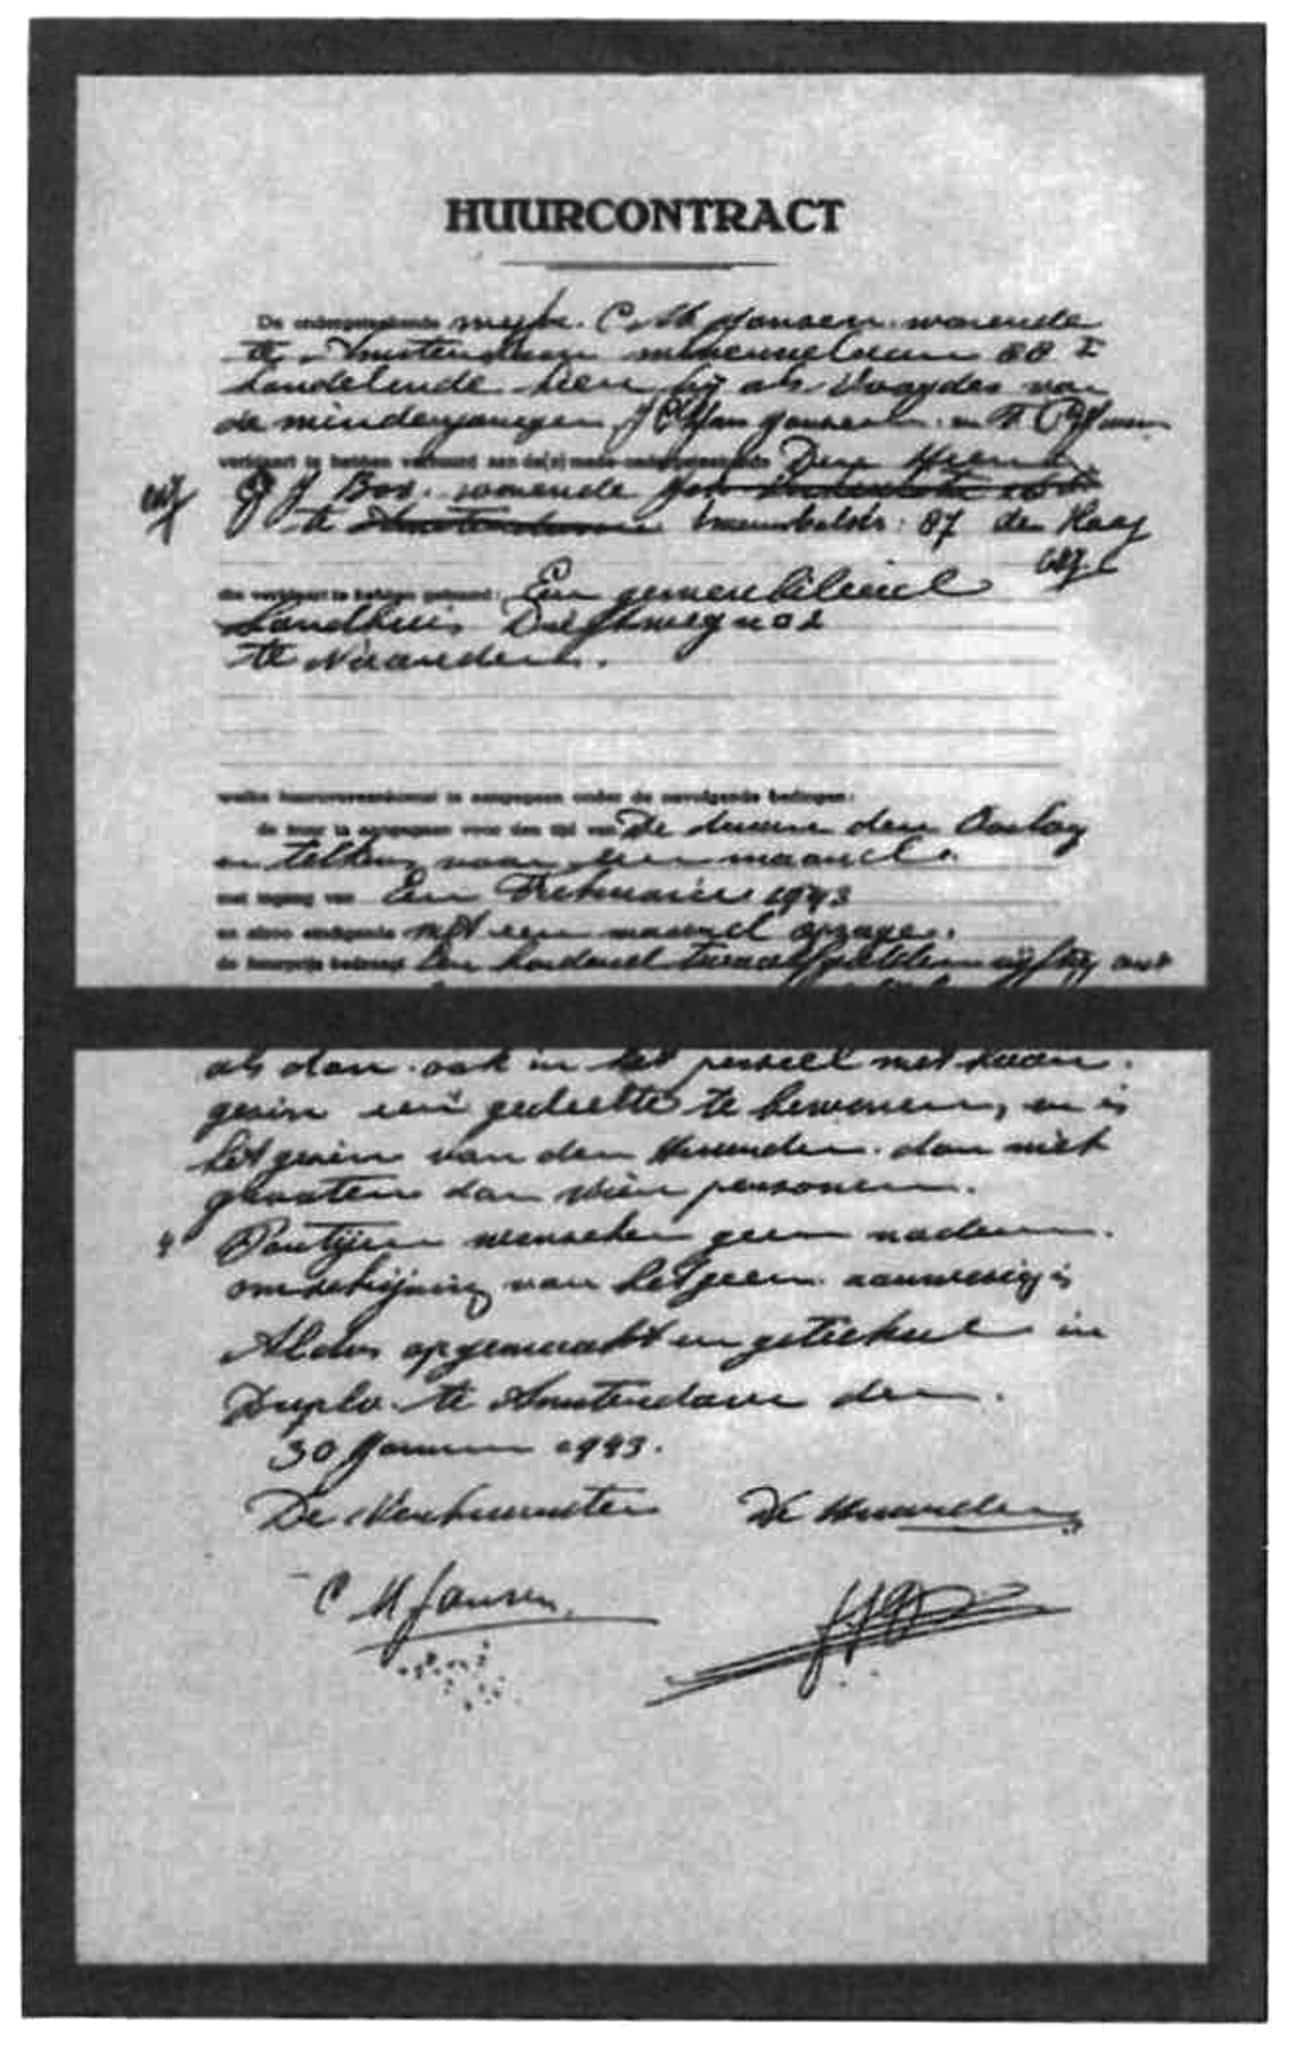 HUURCONTRACT
De ondergeteekende mejw. C M Jansen. wonende
te Amsterdam minervalaan 88 I
handelende hier bij als Voogdes van
de minderjarigen J C Jansen en
verklaart te hebben verhuurd aan de(n) mede-ondergeteekende Den Heer
J J Bos. wonende
te Amsterdam 87 den Haag
die verklaart te hebben gehuurd: Een gemeubileerd
Landhuis Driftweg no 2
te Naarden.
welke huurovereenkomst is aangegaan onder de navolgende bedingen:
de huur is aangegaan voor den tijd van De duur den Oorlog
en telkens voor een maand.
met ingang van Een Februari 1943
en alzoo eindigende met een maand opzage.
de huurprijs bedraagt Een honderd twaalf gulden vijftig cent
als dan ook in het perceel met haar
gezin een gedeelte te bewonen, en is
het gezin van den Huurder dan niet
grooter dan vier personen.
4 Partijen wenschen geen nadere
omschrijving van hetgeen aanwezig is
Aldus opgemaakt en geteekend in
Duplo te Amsterdam den
30 Januari 1943.
De Verhuurster De Huurder
C M Jansen